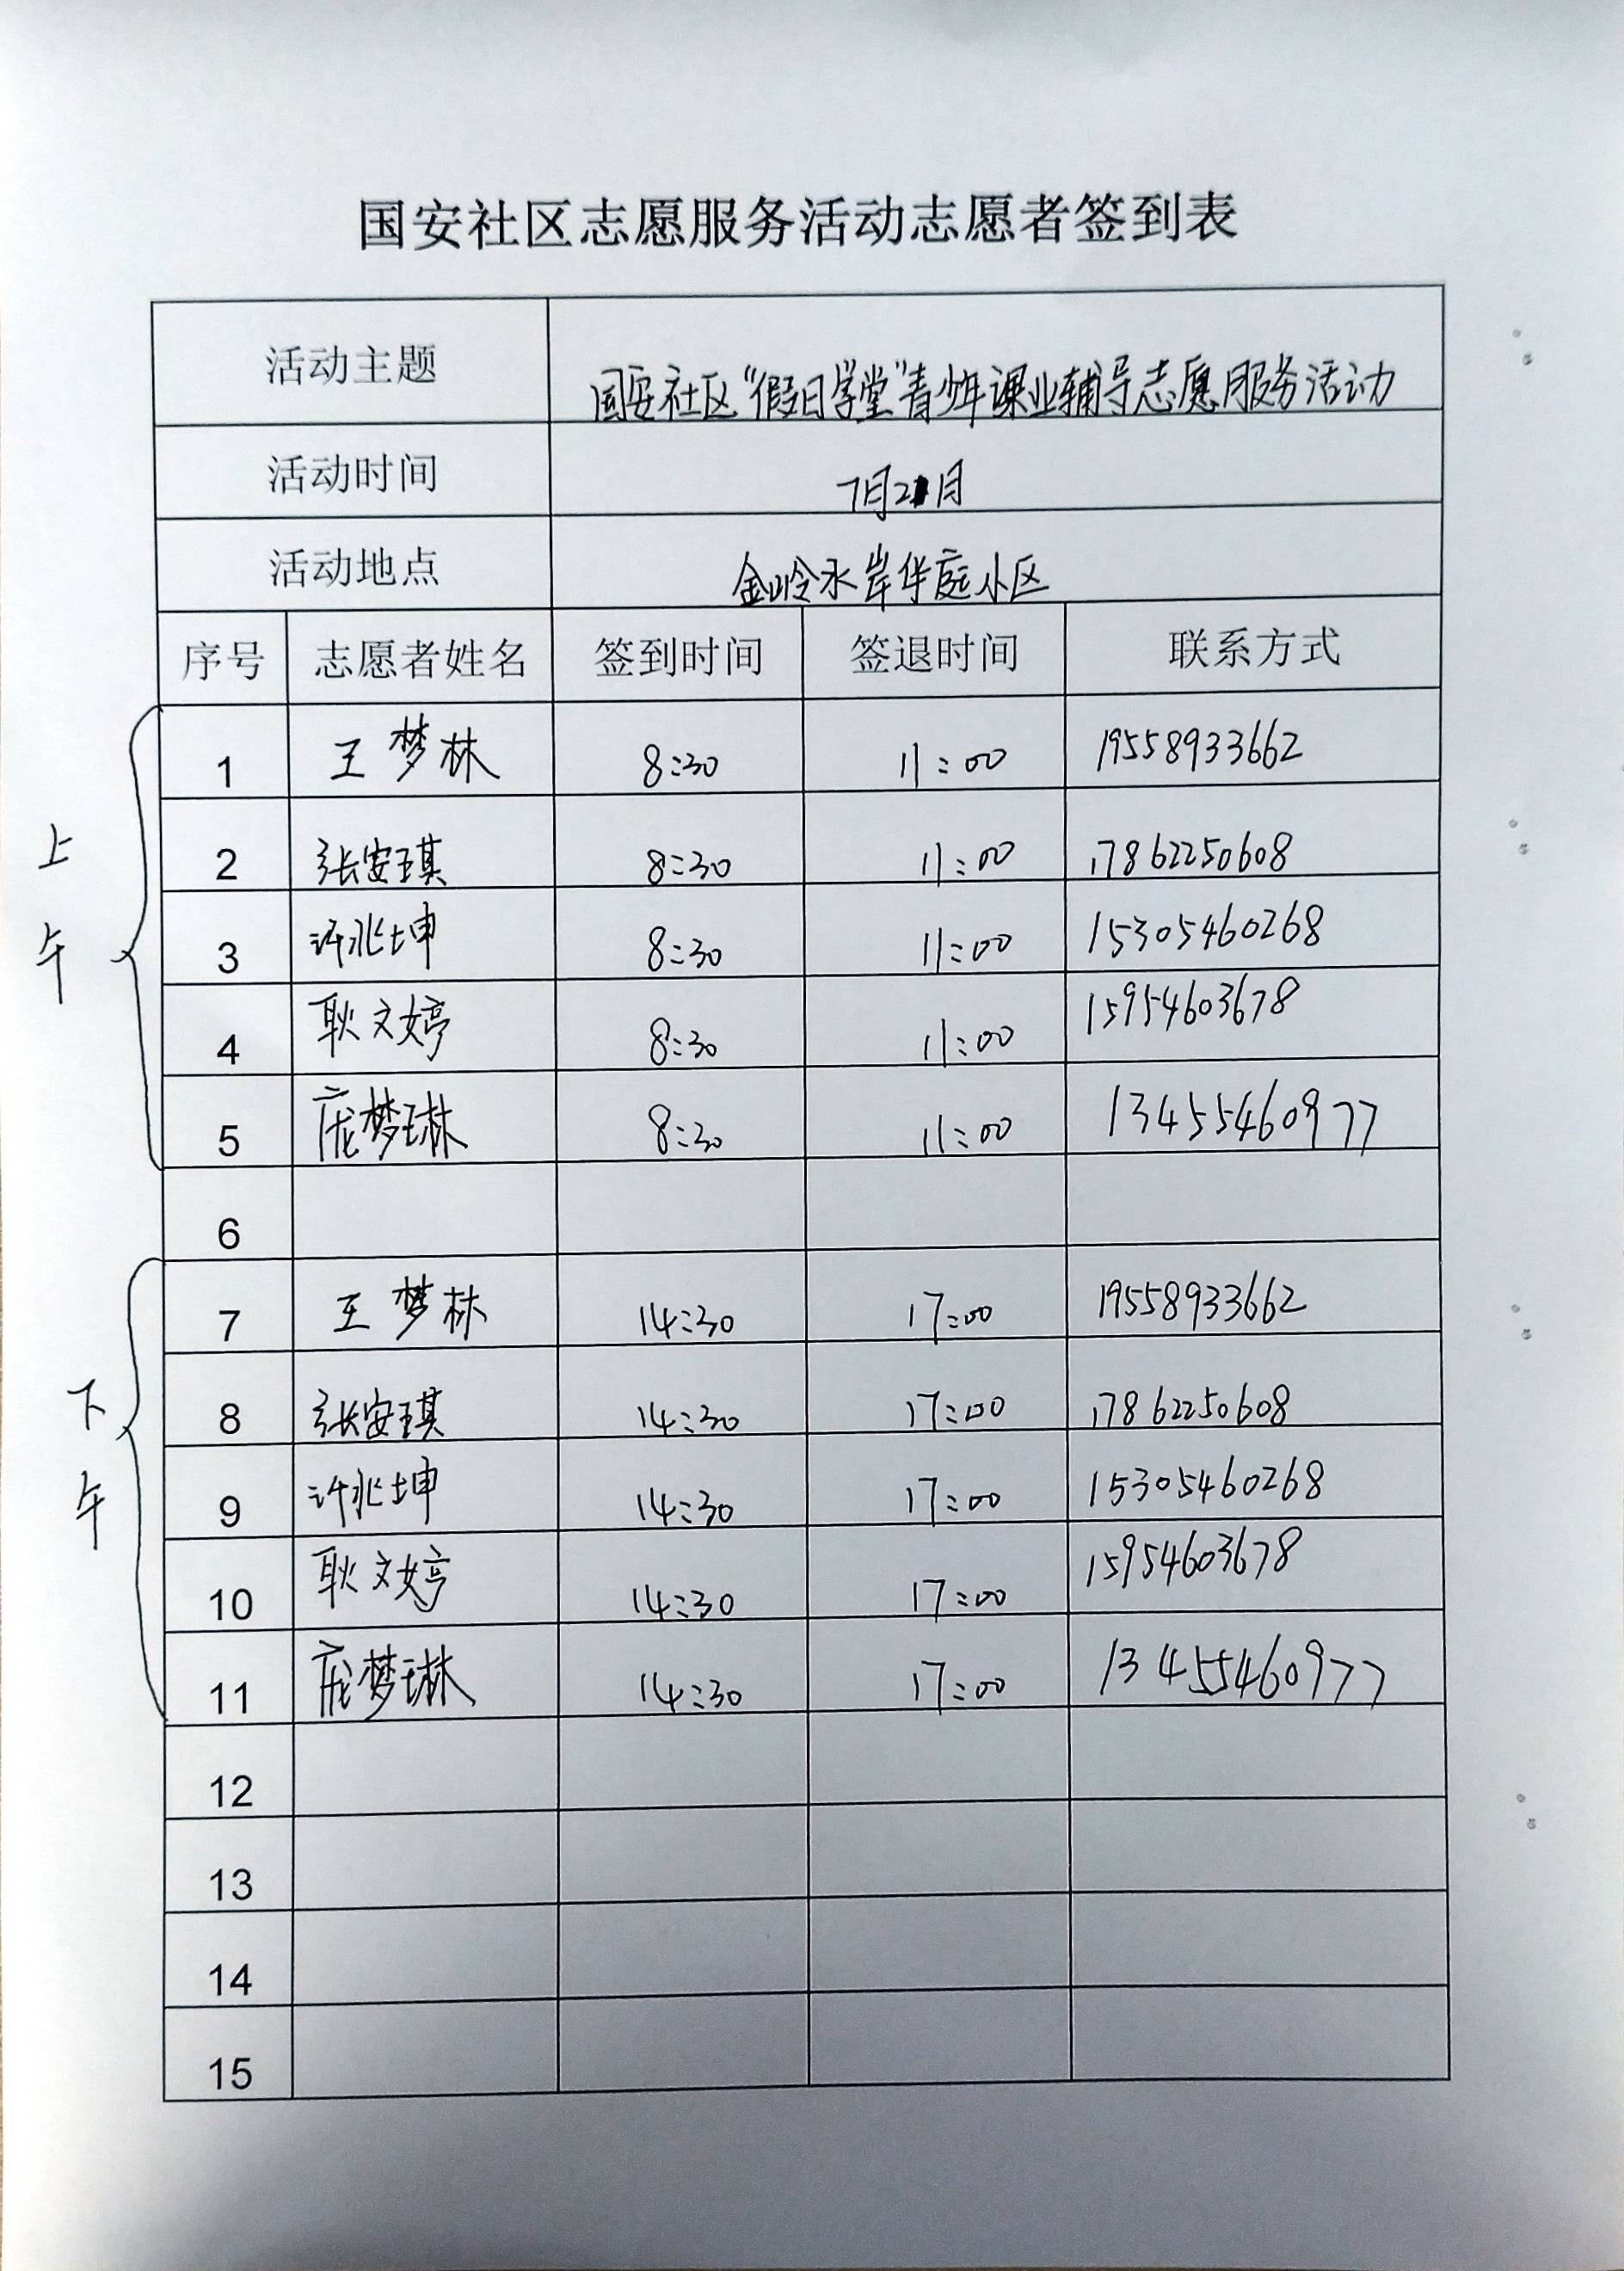 国安社区志愿服务活动志愿者签到表
活动主题 国安社区“假日学堂”青少年课业辅导志愿服务活动
活动时间 7月21日
活动地点 金岭水岸华庭小区
序号 志愿者姓名 签到时间 签退时间 联系方式
上午
1 王梦林 8:30 11:00 19558933662
2 张安琪 8:30 11:00 17862250608
3 许兆坤 8:30 11:00 15305460268
4 耿文婷 8:30 11:00 15954603678
5 庞梦琳 8:30 11:00 13455460977
6
下午
7 王梦林 14:30 17:00 19558933662
8 张安琪 14:30 17:00 17862250608
9 许兆坤 14:30 17:00 15305460268
10 耿文婷 14:30 17:00 15954603678
11 庞梦琳 14:30 17:00 13455460977
12
13
14
15